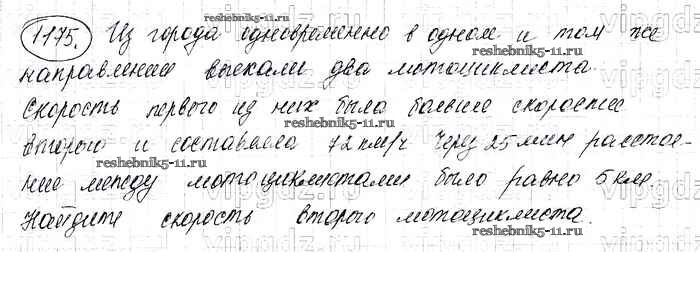 1175. Из города одновременно в одном и том же
направлении выехали два мотоциклиста.
Скорость первого из них была больше скорости
второго и составляла 72 км/ч. Через 25 мин расстоя-
ние между мотоциклистами было равно 5 км.
Найдите скорость второго мотоциклиста.
www.reshebnik5-11.ru
reshebnik5-11.ru
www.reshebnik5-11.ru
reshebnik5-11.ru
www.reshebnik5-11.ru
reshebnik5-11.ru
vipgdz.ru